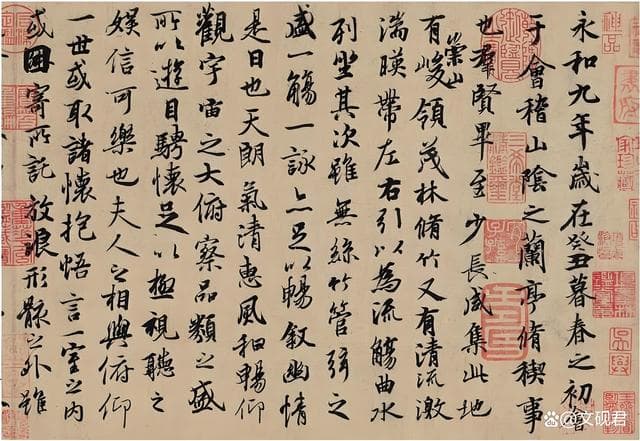 永和九年歲在癸丑暮春之初會
于會稽山陰之蘭亭脩稧事
也羣賢畢至少長咸集此地
有崇山峻領茂林脩竹又有清流激
湍暎帶左右引以為流觴曲水
列坐其次雖無絲竹管弦之
盛一觴一詠亦足以暢叙幽情
是日也天朗氣清惠風和暢仰
觀宇宙之大俯察品類之盛
所以遊目騁懷足以極視聽之
娛信可樂也夫人之相與俯仰
一世或取諸懷抱悟言一室之内
或因寄所託放浪形骸之外雖
@文砚君